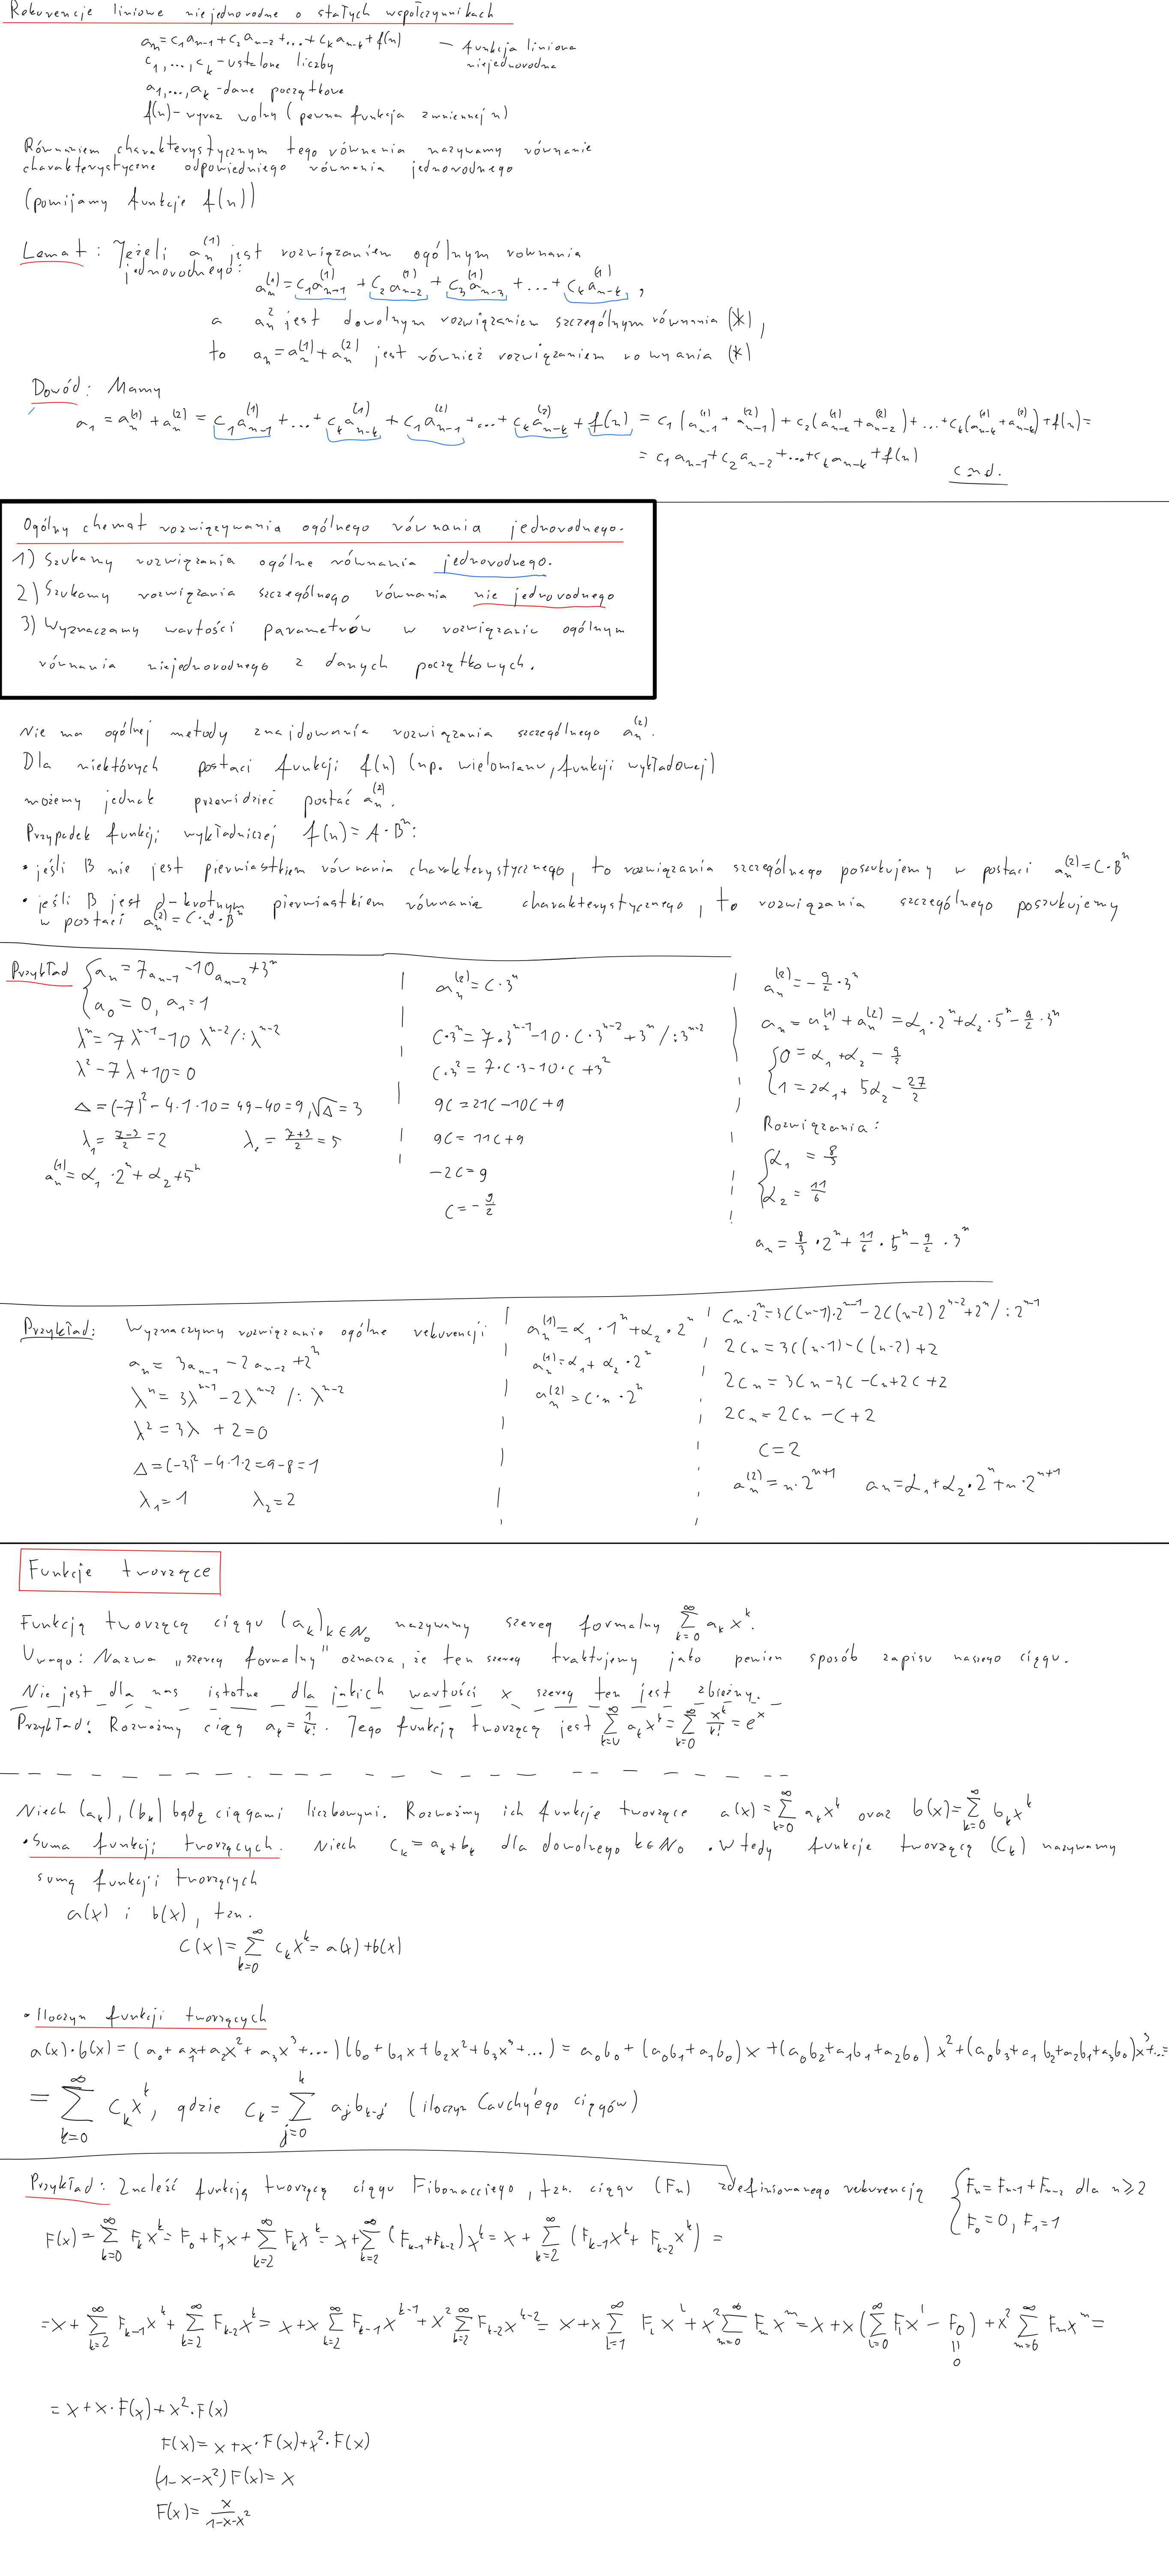 Rekurencje liniowe niejednorodne o stałych współczynnikach
aₙ=c₁aₙ₋₁+c₂aₙ₋₂+...+cₖaₙ₋ₖ+f(n) — funkcja liniowa niejednorodna
c₁,...,cₖ-ustalone liczby
a₁,...,aₖ-dane początkowe
f(n)-wyraz wolny (pewna funkcja zmiennej n)
Równaniem charakterystycznym tego równania nazywamy równanie
charakterystyczne odpowiedniego równania jednorodnego
(pomijamy funkcje f(n))
Lemat: Jeżeli aₙ⁽¹⁾ jest rozwiązaniem ogólnym rownania
jednorodnego: aₙ⁽¹⁾=c₁aₙ₋₁⁽¹⁾+c₂aₙ₋₂⁽¹⁾+c₃aₙ₋₃⁽¹⁾+...+cₖaₙ₋ₖ⁽¹⁾,
a aₙ² jest dowolnym rozwiązaniem szczególnym równania (*),
to aₙ=aₙ⁽¹⁾+aₙ⁽²⁾ jest również rozwiązaniem rownania (*)
Dowód: Mamy
a₁=aₙ⁽¹⁾+aₙ⁽²⁾=c₁aₙ₋₁⁽¹⁾+...+cₖaₙ₋ₖ⁽¹⁾+c₁aₙ₋₁⁽²⁾+...+cₖaₙ₋ₖ⁽²⁾+f(n)=c₁(aₙ₋₁⁽¹⁾+aₙ₋₁⁽²⁾)+c₂(aₙ₋₂⁽¹⁾+aₙ₋₂⁽²⁾)+...+cₖ(aₙ₋ₖ⁽¹⁾+aₙ₋ₖ⁽²⁾)+f(n)=
=c₁aₙ₋₁+c₂aₙ₋₂+...+cₖaₙ₋ₖ+f(n) cnd.
Ogólny chemat rozwięzywania ogólnego równania jednorodnego.
1) Szukamy rozwiązania ogólne równania jednorodnego.
2) Szukamy rozwiązania szczególnego równania nie jednorodnego
3) Wyznaczamy wartości parametrów w rozwiązaniu ogólnym
równania niejednorodnego z danych początkowych.
Nie ma ogólnej metody znajdowania rozwiązania szczególnego aₙ⁽²⁾.
Dla niektórych postaci funkcji f(n) (np. wielomianu, funkcji wykładowej)
możemy jednak przewidzieć postać aₙ⁽²⁾.
Przypadek funkcji wykładniczej f(n)=A·Bⁿ:
• jeśli B nie jest pierwiastkiem równania charakterystycznego, to rozwiązania szczególnego poszukujemy w postaci aₙ⁽²⁾=C·Bⁿ
• jeśli B jest d-krotnym pierwiastkiem równania charakterystycznego, to rozwiązania szczególnego poszukujemy
w postaci aₙ⁽²⁾=C·nᵈ·Bⁿ
Przykład { aₙ=7aₙ₋₁-10aₙ₋₂+3ⁿ
a₀=0, a₁=1
λⁿ=7λⁿ⁻¹-10λⁿ⁻²/:λⁿ⁻²
λ²-7λ+10=0
Δ=(-7)²-4·1·10=49-40=9, √Δ=3
λ₁=(7-3)/2=2 λ₂=(7+3)/2=5
aₙ⁽¹⁾=α₁·2ⁿ+α₂+5ⁿ
aₙ⁽²⁾=C·3ⁿ
C·3ⁿ=7·3ⁿ⁻¹-10·C·3ⁿ⁻²+3ⁿ/:3ⁿ⁻²
C·3²=7·C·3-10·C+3²
9C=21C-10C+9
9C=11C+9
-2C=9
C=-9/2
aₙ⁽²⁾=-9/2·3ⁿ
aₙ=aₙ⁽¹⁾+aₙ⁽²⁾=α₁·2ⁿ+α₂·5ⁿ-9/2·3ⁿ
{ 0=α₁+α₂-9/2
1=2α₁+5α₂-27/2
Rozwiązania:
{ α₁=8/3
α₂=11/6
aₙ=8/3·2ⁿ+11/6·5ⁿ-9/2·3ⁿ
Przykład: Wyznaczymy rozwiązanie ogólne rekurencji
aₙ=3aₙ₋₁-2aₙ₋₂+2ⁿ
λⁿ=3λⁿ⁻¹-2λⁿ⁻²/:λⁿ⁻²
λ²=3λ+2=0
Δ=(-3)²-4·1·2=9-8=1
λ₁=1 λ₂=2
aₙ⁽¹⁾=α₁·1ⁿ+α₂·2ⁿ
aₙ⁽¹⁾=α₁+α₂·2ⁿ
aₙ⁽²⁾=C·n·2ⁿ
Cn·2ⁿ=3C(n-1)·2ⁿ⁻¹-2C(n-2)2ⁿ⁻²+2ⁿ/:2ⁿ⁻¹
2Cn=3C(n-1)-C(n-2)+2
2Cn=3Cn-3C-Cn+2C+2
2Cn=2Cn-C+2
C=2
aₙ⁽²⁾=n·2ⁿ⁺¹ aₙ=α₁+α₂·2ⁿ+n·2ⁿ⁺¹
Funkcje tworzące
Funkcją tworzącą ciągu (aₖ)ₖ∈N₀ nazywamy szereg formalny ∑ₖ₌₀^∞ aₖxᵏ.
Uwaga: Nazwa „szereg formalny" oznacza, że ten szereg traktujemy jako pewien sposób zapisu naszego ciągu.
Nie jest dla nas istotne dla jakich wartości x szereg ten jest zbieżny.
Przykład: Rozważmy ciąg aₖ=1/k!. Jego funkcją tworzącą jest ∑ₖ₌₀^∞ aₖxᵏ=∑ₖ₌₀^∞ xᵏ/k!=eˣ
Niech (aₖ),(bₖ) będą ciągami liczbowymi. Rozważmy ich funkcje tworzące a(x)=∑ₖ₌₀^∞ aₖxᵏ oraz b(x)=∑ₖ₌₀^∞ bₖxᵏ
• Suma funkcji tworzących. Niech cₖ=aₖ+bₖ dla dowolnego k∈N₀. Wtedy funkcje tworzącą (Cₖ) nazywamy
sumą funkcji tworzących
a(x) i b(x), tzn.
C(x)=∑ₖ₌₀^∞ cₖxᵏ=a(x)+b(x)
• Iloczyn funkcji tworzących
a(x)·b(x)=(a₀+a₁x+a₂x²+a₃x³+...)(b₀+b₁x+b₂x²+b₃x³+...)=a₀b₀+(a₀b₁+a₁b₀)x+(a₀b₂+a₁b₁+a₂b₀)x²+(a₀b₃+a₁b₂+a₂b₁+a₃b₀)x³+...=
=∑ₖ₌₀^∞ cₖxᵏ, gdzie cₖ=∑ⱼ₌₀ᵏ aⱼbₖ₋ⱼ (iloczyn Cauchy'ego ciągów)
Przykład: Znaleźć funkcją tworzącą ciągu Fibonacciego, tzn. ciągu (Fₙ) zdefiniowanego rekurencją { Fₙ=Fₙ₋₁+Fₙ₋₂ dla n≥2
F₀=0, F₁=1
F(x)=∑ₖ₌₀^∞ Fₖxᵏ=F₀+F₁x+∑ₖ₌₂^∞ Fₖxᵏ=x+∑ₖ₌₂^∞ (Fₖ₋₁+Fₖ₋₂)xᵏ=x+∑ₖ₌₂^∞ (Fₖ₋₁xᵏ+Fₖ₋₂xᵏ)=
=x+∑ₖ₌₂^∞ Fₖ₋₁xᵏ+∑ₖ₌₂^∞ Fₖ₋₂xᵏ=x+x∑ₖ₌₂^∞ Fₖ₋₁xᵏ⁻¹+x²∑ₖ₌₂^∞ Fₖ₋₂xᵏ⁻²=x+x∑ₗ₌₁^∞ Fₗxˡ+x²∑ₘ₌₀^∞ Fₘxᵐ=x+x(∑ₗ₌₀^∞ Fₗxˡ-F₀)+x²∑ₘ₌₀^∞ Fₘxᵐ=
||
0
=x+x·F(x)+x²·F(x)
F(x)=x+x·F(x)+x²·F(x)
(1-x-x²)F(x)=x
F(x)=x/(1-x-x²)